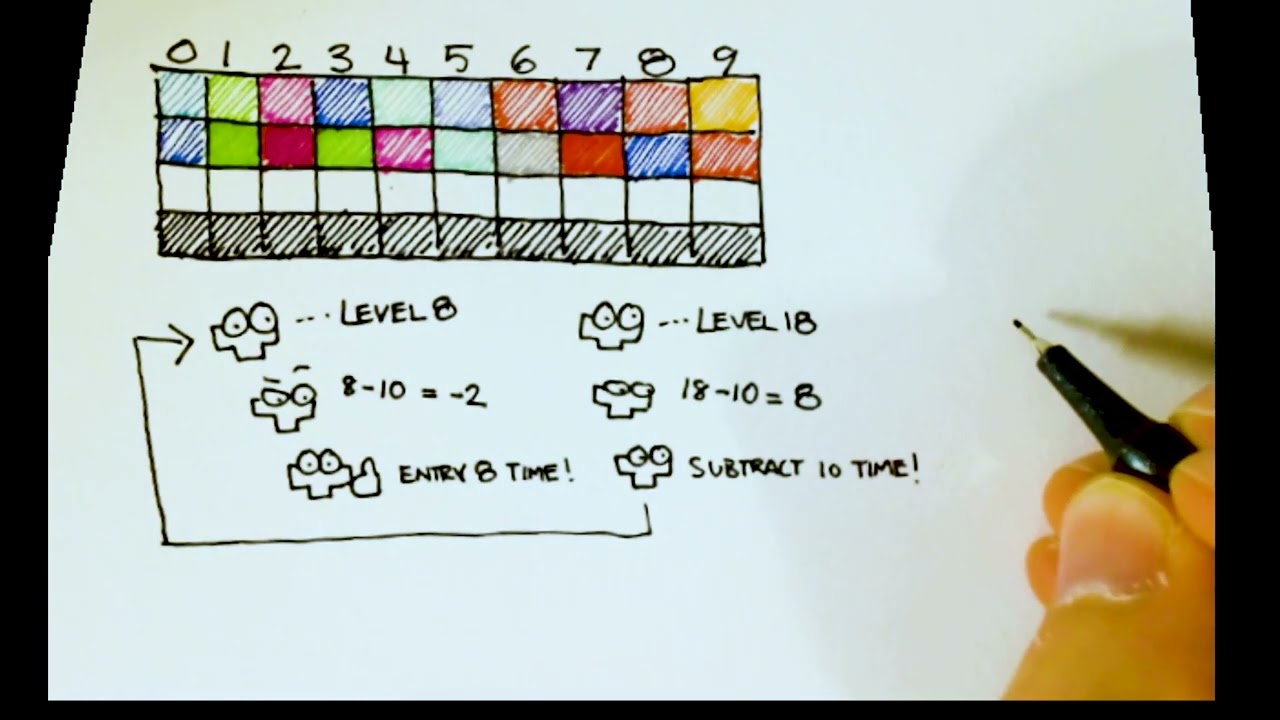 0 1 2 3 4 5 6 7 8 9
... LEVEL 8
8-10 = -2
ENTRY 8 TIME!
... LEVEL 18
18-10 = 8
SUBTRACT 10 TIME!